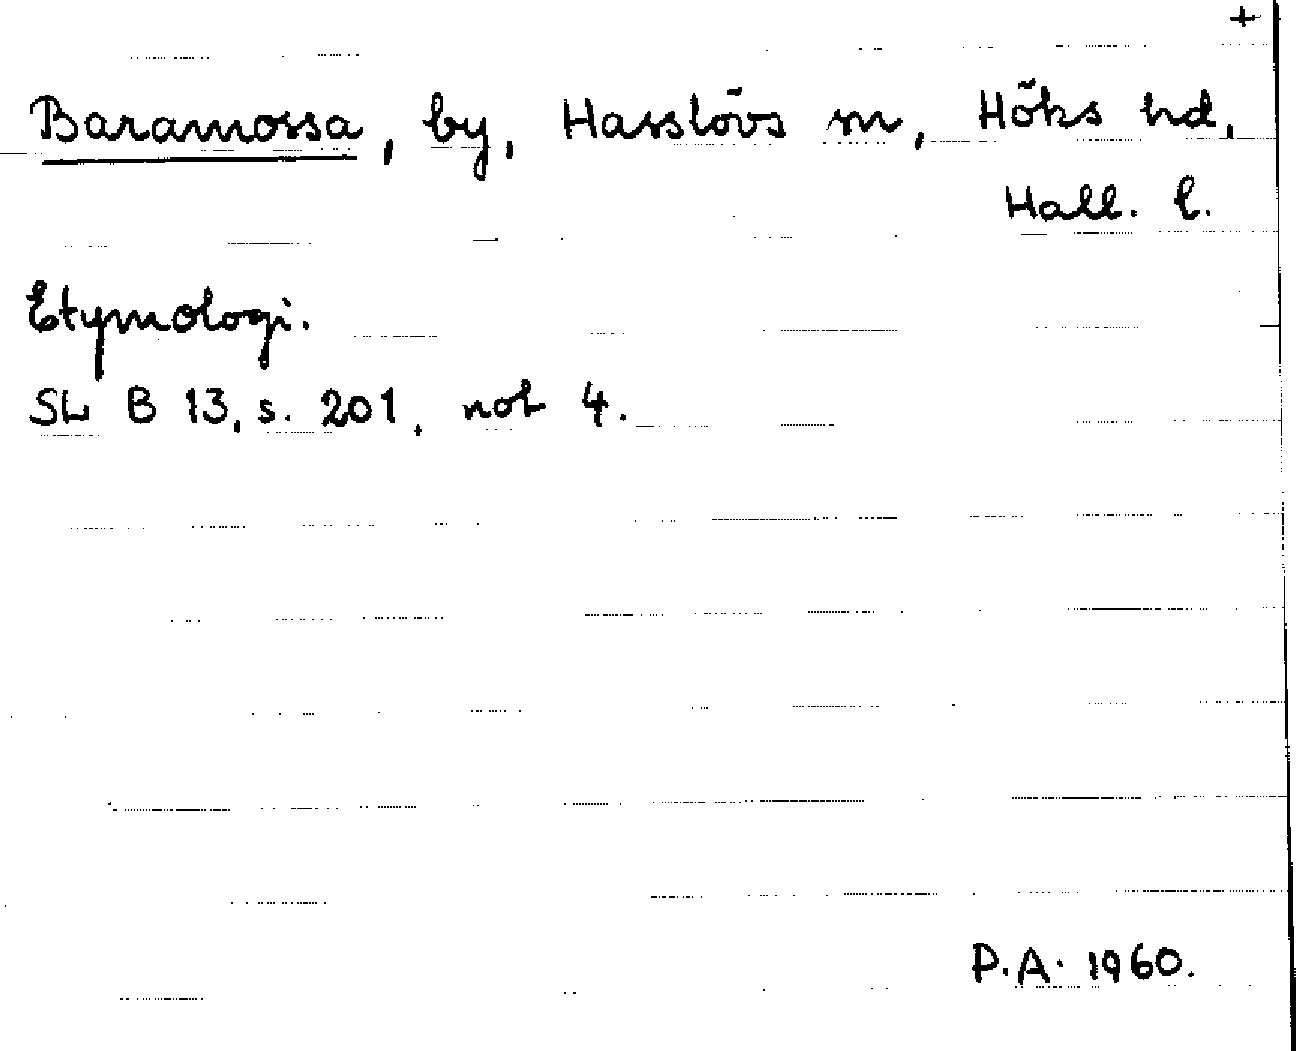 +
Baramossa, by, Hasslövs sn, Höks hd,
Hall. l.
Etymologi.
SL B 13, s. 201, not 4.
P.A. 1960.